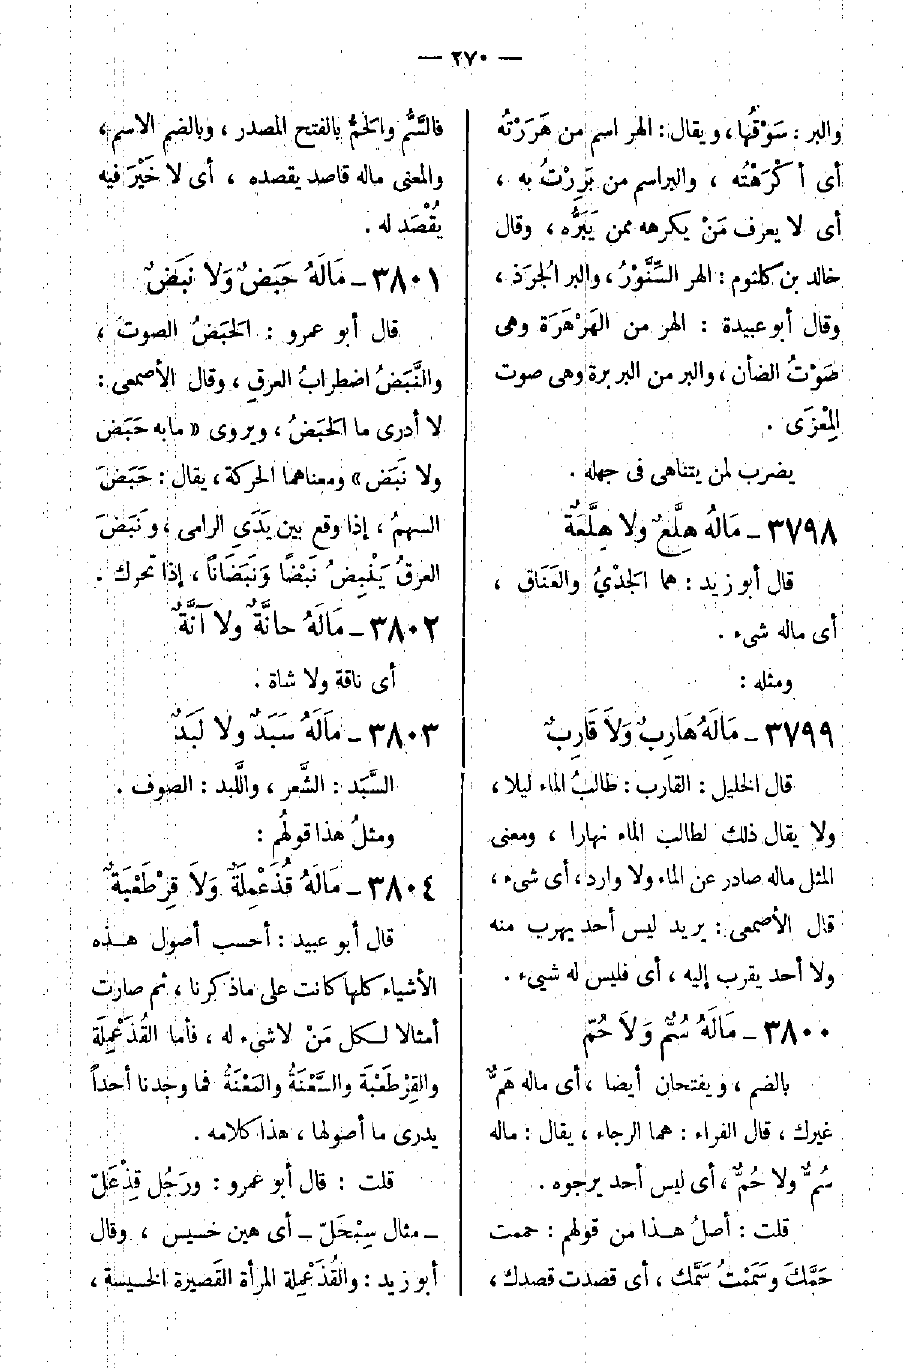 — ٢٧٠ —
والبر : سَوْقُها ، ويقال : الهر اسم من هَرَرْتُه
أى أ كْرَهْتُه ، والبراسم من بَرِرْتُ به ،
أى لا يعرف مَنْ يكرهه ممن يَبَرُّه ، وقال
خالد بن كلثوم : الهر السِّنَّوْرُ ، والبر الْجرَذ ،
وقال أبو عبيدة : الهر من الهَرْهَرَة وهى
صَوْتُ الضأن ، والبر من البربرة وهى صوت
المِعْزَى .
يضرب لمن يتناهى فى جهله .
٣٧٩٨ ــ مَالَهُ هِلَّعٌ ولا هِلَّعَةٌ
قال أبو زيد : هما الْجَدْىُ والعَنَاق ،
أى ماله شىء .
ومثله :
٣٧٩٩ ــ مَالَهُ هَارِبٌ وَلاَ قَارِبٌ
قال الخليل : القارب : طالبُ الماء ليلا ،
ولا يقال ذلك لطالب الماء نهارا ، ومعنى
المثل ماله صادر عن الماء ولا وارد ، أى شىء ،
قال الأصمعى : يريد ليس أحد يهرب منه
ولا أحد يقرب إليه ، أى فليس له شىء .
٣٨٠٠ ــ مَالَهُ سُمٌّ وَلاَ حُمٌّ
بالضم ، ويفتحان أيضا ، أى ماله هَمٌّ
غيرك ، قال الفراء : هما الرجاء ، يقال : ماله
سُمٌّ ولا حُمٌّ ، أى ليس أحد يرجوه .
قلت : أصلُ هــذا من قولهم : حممت
حَمَّكَ وسَمَمْتُ سَمَّك ، أى قصدت قصدك ،
فالسَّمُّ والحَمُّ بالفتح المصدر ، وبالضم الاسم ،
والمعنى ماله قاصد يقصده ، أى لا خَيْرَ فيه
يُقْصَد له .
٣٨٠١ ــ مَالَهُ حَبَضٌ وَلا نَبَضٌ
قال أبو عمرو : الْحَبَضُ الصوت ،
والنَّبَضُ اضطرابُ العرقِ ، وقال الأصمعى :
لا أدرى ما الْحَبَضُ ، ويروى « مابه حَبَض
ولا نَبَض » ومعناهما الحركة ، يقال : حَبَضَ
السهمُ ، إذا وقع بين يَدَىِ الرامى ، ونَبَضَ
العرقُ يَنْبِضُ نَبْضًا وَنَبَضَانًا ، إذا تحرك .
٣٨٠٢ ــ مَالَهُ حانَّةٌ ولا آنَّةٌ
أى ناقة ولا شاة .
٣٨٠٣ ــ مَالَهُ سَبَدٌ ولا لَبَدٌ
السَّبَد : الشَّعر ، واللَّبد : الصوف .
ومثلُ هذا قولُهم :
٣٨٠٤ ــ مَالَهُ قُذَعْمِلَةٌ وَلاَ قِرْطَعْبَةٌ
قال أبو عبيد : أحسب أصول هــذه
الأشياء كلها كانت على ماذكرنا ، ثم صارت
أمثالا لــكل مَنْ لاشىء له ، فأما القُذَعْمِلَة
والقِرْطَعْبَة والسَّعْنَةُ والمَعْنَةُ فما وجدنا أحداً
يدرى ما أصولها ، هذا كلامه .
قلت : قال أبو عمرو : ورَجُل قِذْعَلّ
ــ مثال سِبَحْلّ ــ أى هين خسيس ، وقال
أبو زيد : والقُذَعْمِلة المرأة القَصيرة الخسيسة ،